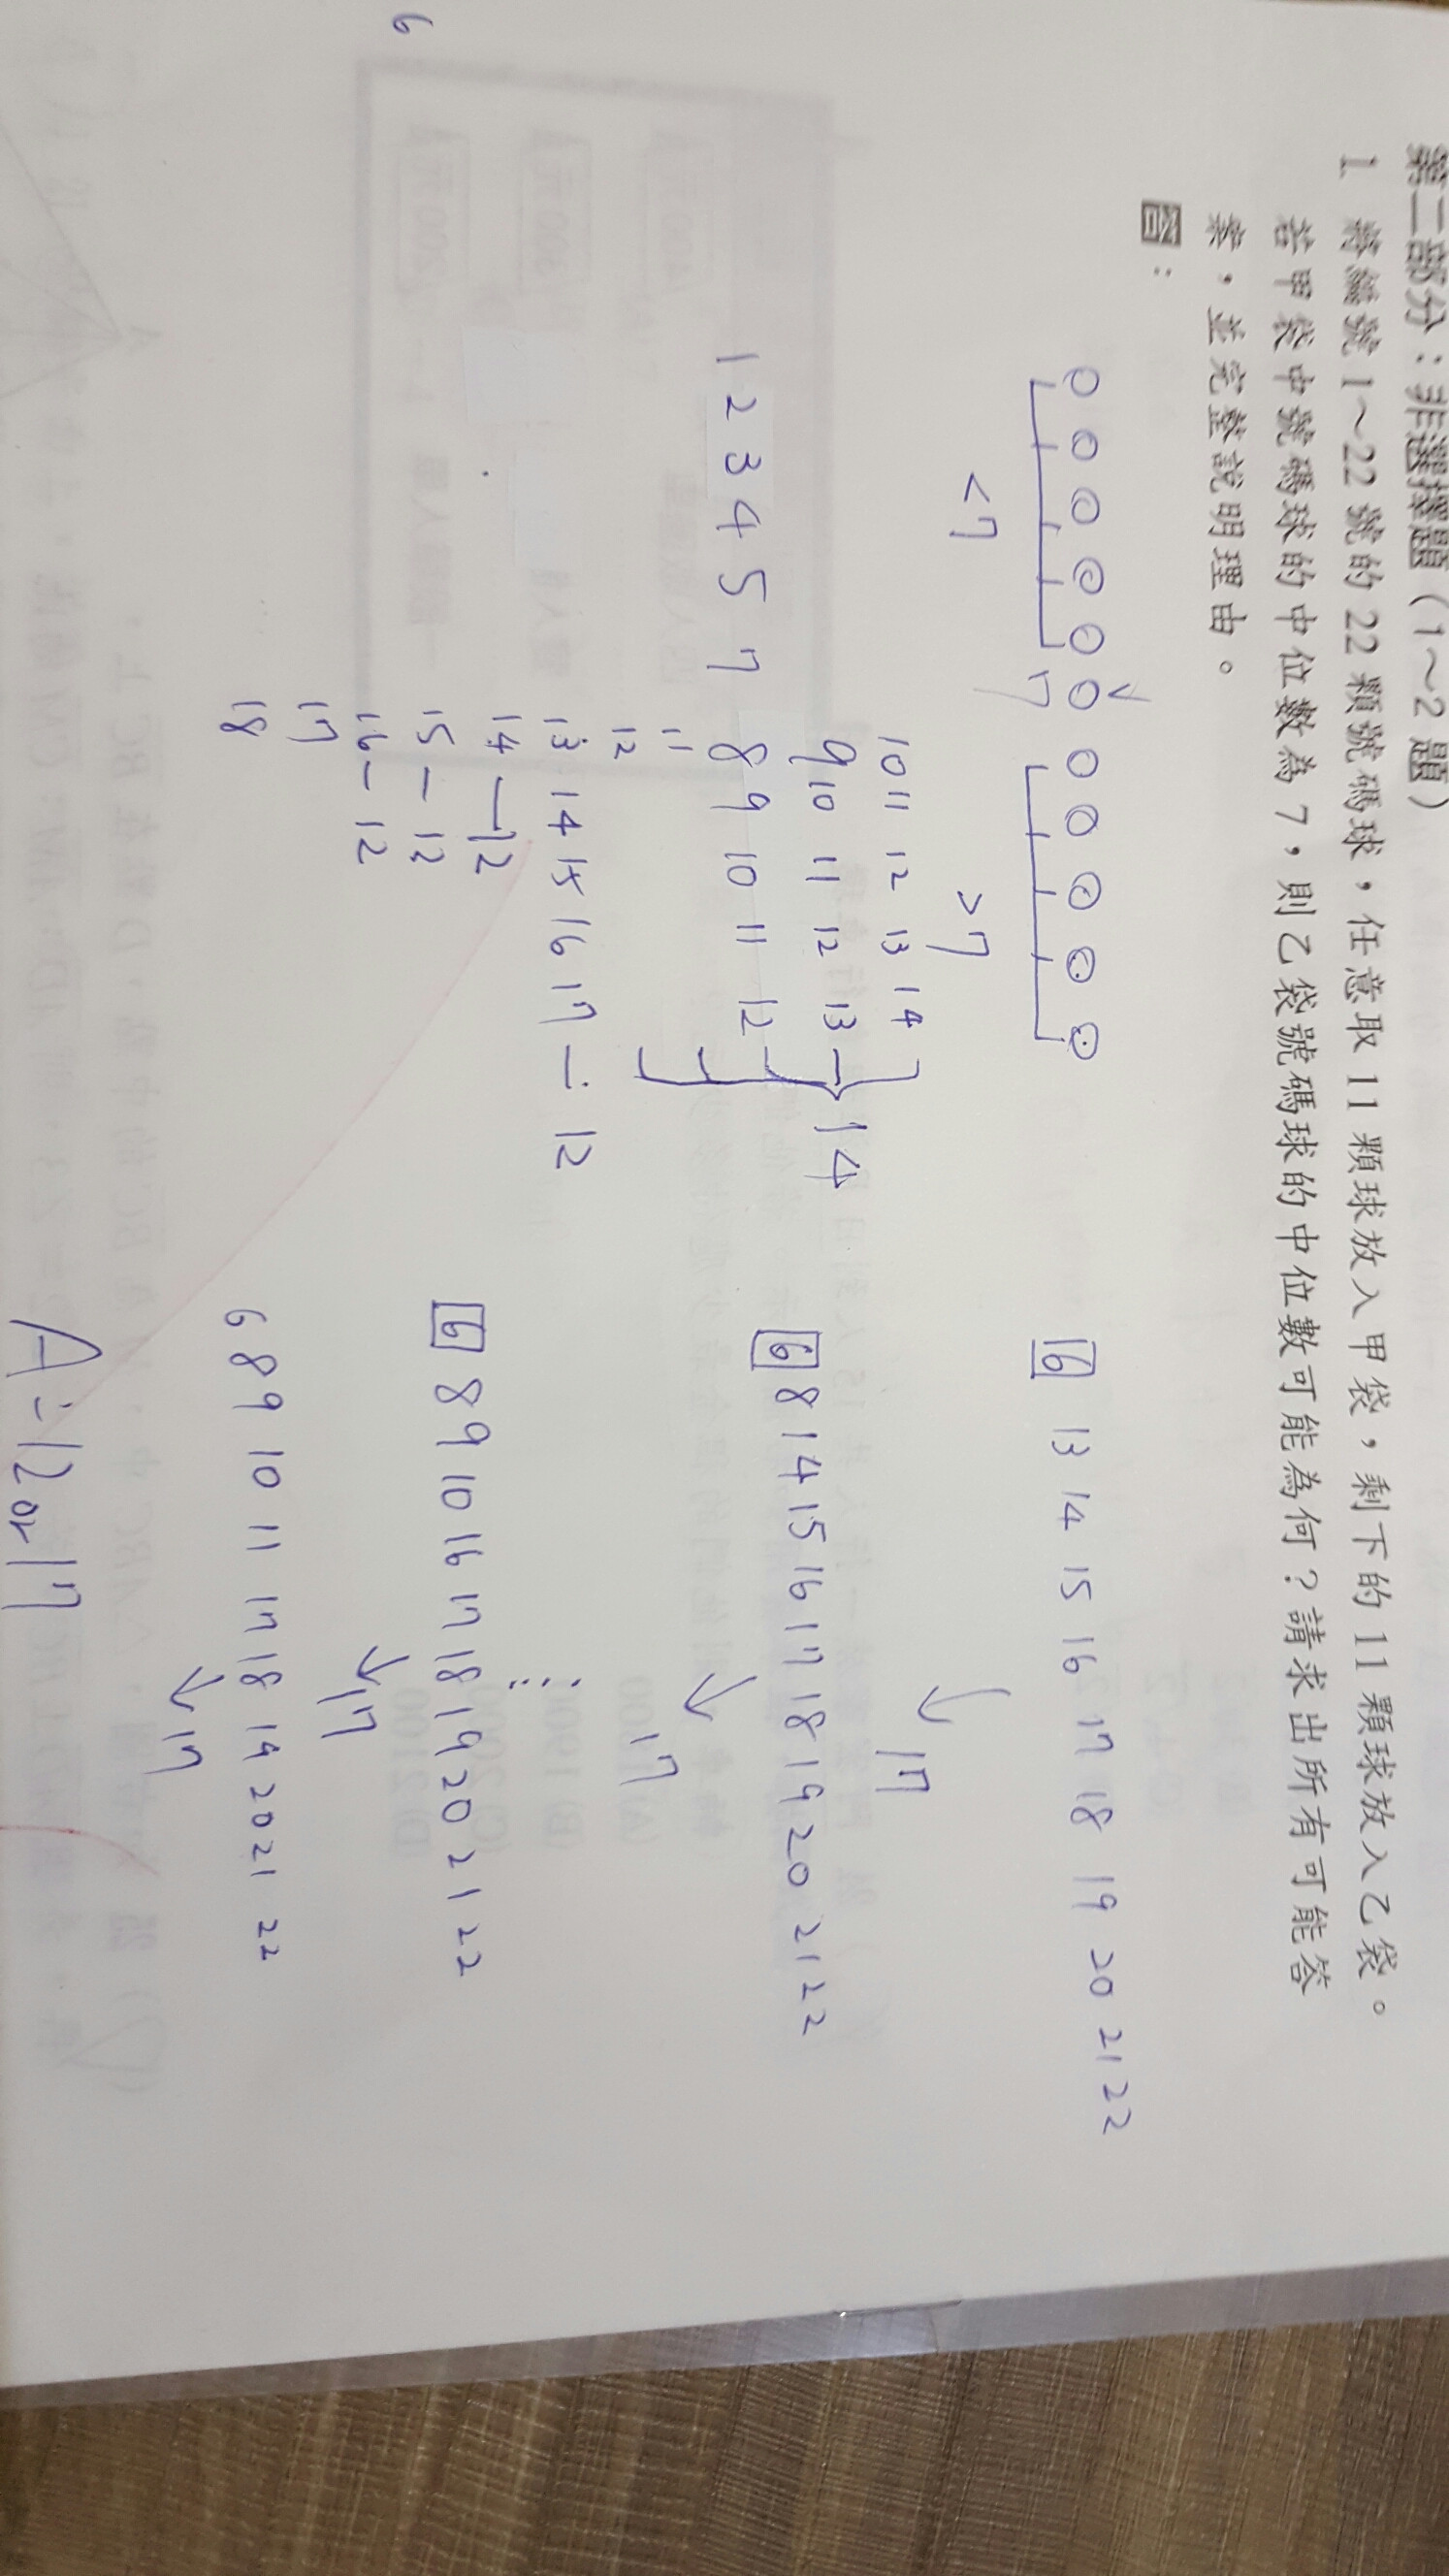 第二部分：非選擇題（1～2 題）
1 將編號 1～22 號的 22 顆號碼球，任意取 11 顆球放入甲袋，剩下的 11 顆球放入乙袋。
若甲袋中號碼球的中位數為 7，則乙袋號碼球的中位數可能為何？請求出所有可能答
案，並完整說明理由。
答：
7
<7
>7
10 11 12 13 14
9 10 11 12 13
1 2 3 4 5 7 8 9 10 11 12
14
11
12
13 14 15 16 17 — 12
14 — 12
15 — 12
16 — 12
17
18
6
6 13 14 15 16 17 18 19 20 21 22
↓ 17
6 8 14 15 16 17 18 19 20 21 22
↓ 17
6 8 9 10 16 17 18 19 20 21 22
↓ 17
6 8 9 10 11 17 18 19 20 21 22
↓ 17
A：12 or 17